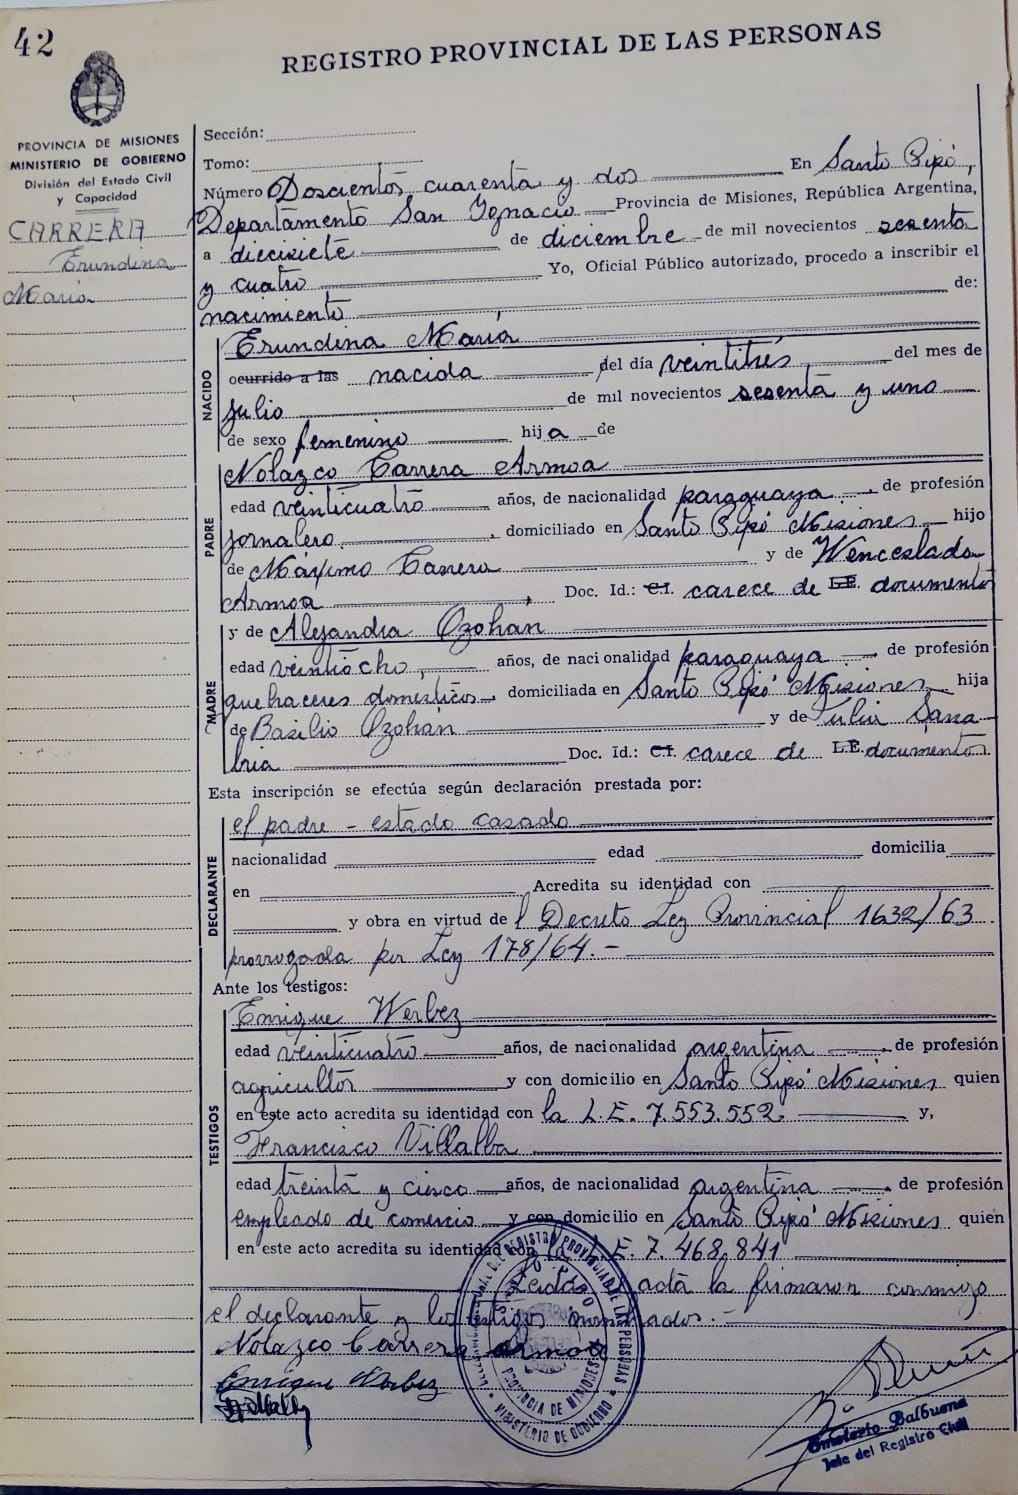 42
REGISTRO PROVINCIAL DE LAS PERSONAS
PROVINCIA DE MISIONES
MINISTERIO DE GOBIERNO
División del Estado Civil
y Capacidad
CARRERA
Erundina
María
Sección:
Tomo:
Número Doscientos cuarenta y dos En Santo Pipó,
Departamento San Ignacio Provincia de Misiones, República Argentina,
a diecisiete de diciembre de mil novecientos sesenta
y cuatro Yo, Oficial Público autorizado, procedo a inscribir el
nacimiento de:
NACIDO
Erundina María
ocurrido a las nacida del día veintitrés del mes de
julio de mil novecientos sesenta y uno
de sexo femenino hija de
PADRE
Nolazco Carrera Armoa
edad veinticuatro años, de nacionalidad paraguaya, de profesión
jornalero, domiciliado en Santo Pipó Misiones hijo
de Máximo Carrera y de Wenceslada
Armoa, Doc. Id.: C.I. carece de L.E. documento
MADRE
y de Alejandra Ozohan
edad veintiocho, años, de nacionalidad paraguaya de profesión
quehaceres domesticos, domiciliada en Santo Pipó Misiones hija
de Basilio Ozohan y de Julia Sana
bria Doc. Id.: C.I. carece de L.E. documentos
Esta inscripción se efectúa según declaración prestada por:
DECLARANTE
el padre - estado casado
nacionalidad edad domicilia
en Acredita su identidad con
y obra en virtud del Decreto Ley Provincial 1632/63
prorrogada por Ley 178/64.-
Ante los testigos:
TESTIGOS
Enrique Werbez
edad veinticuatro años, de nacionalidad argentina, de profesión
agricultor y con domicilio en Santo Pipó Misiones quien
en este acto acredita su identidad con la L.E. 7.553.552 y,
Francisco Villalba
edad treinta y cinco años, de nacionalidad argentina, de profesión
empleado de comercio y con domicilio en Santo Pipó Misiones quien
en este acto acredita su identidad con la L.E. 7.468.841
Leída acta la firmaron conmigo
el declarante y los testigos nombrados.-
Nolazco Carrera Armoa
Enrique Werbez
REGISTRO PROVINCIAL DE LAS PERSONAS
SANTO PIPO
PROVINCIA DE MISIONES
MINISTERIO DE GOBIERNO
Balbuena
Jefe del Registro Civil